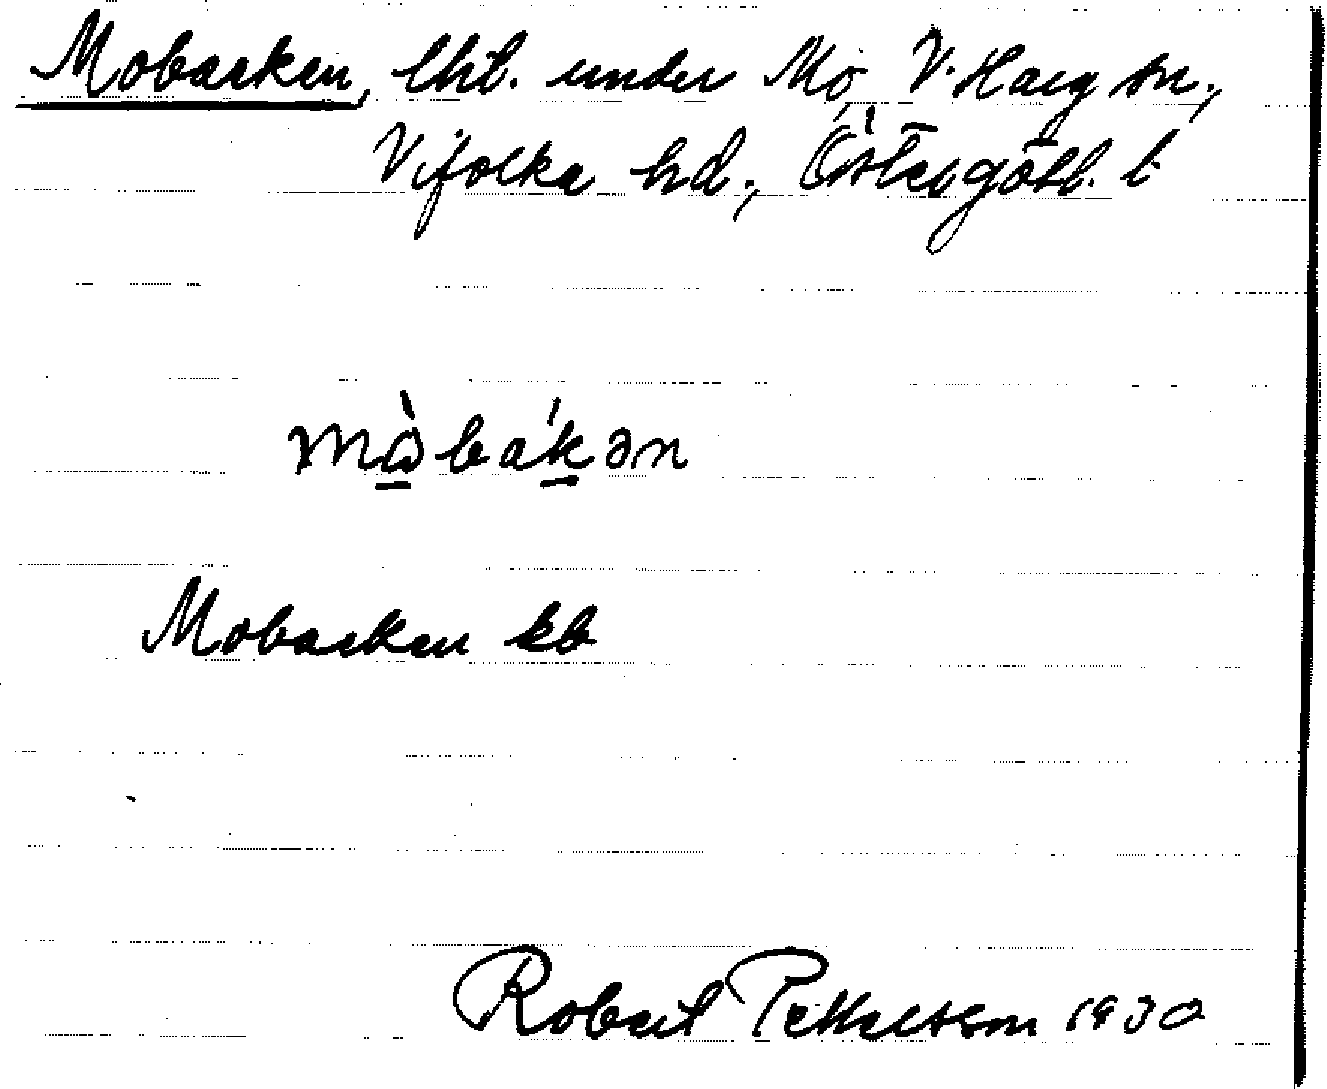 Mobacken, lht. under Mo, V. Harg sn.,
Vifolka hd., Östergötl. l.
mo̠̍bák̠ən
Mobacken kb
Robert Pettersson 1930